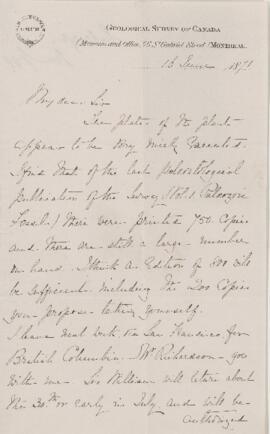 GEOLOGICAL SURVEY OF CANADA
(Museum and Office, 76, St. Gabriel Street) MONTREAL.
13 June 1871
My dear Sir
The plates of the plants
appear to be very nicely executed.
I find that of the last paleontological
publication of the Survey (Vol. 1. Palæozoic
Fossils) there were printed 750 Copies
and there are still a large number
on hand. I think an Edition of 500 will
be sufficient. Including the 200 Copies
you propose taking yourself.
I leave next week via San Francisco for
British Columbia. Mr Richardson goes
with me. Sir William will return about
the 30th or early in July and will be
authorized